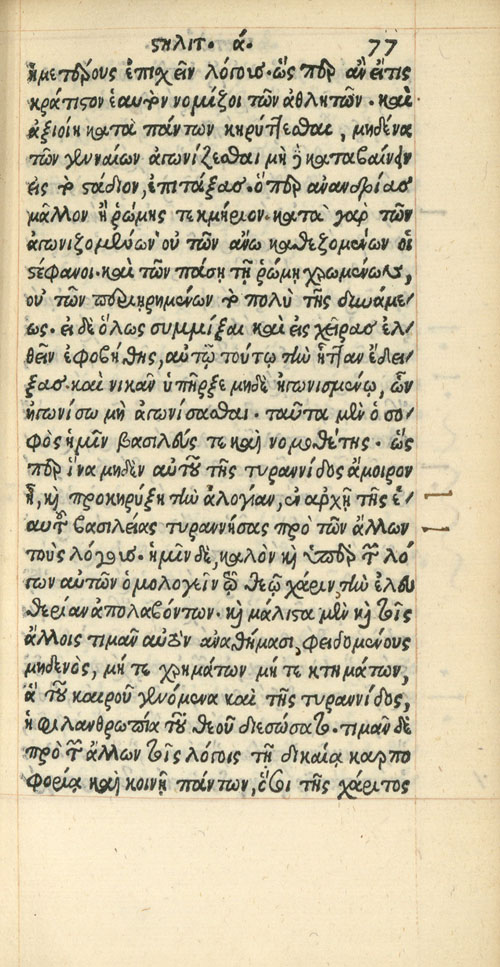 ϛηλιτ. ά. 77
ἡμετέρους ἐπιχεῖν λόγους· ὥσπερ ἂν εἴ τις
κράτιστον ἑαυτὸν νομίζοι τῶν ἀθλητῶν· καὶ
ἀξιοίη κατὰ πάντων κηρύττεσθαι, μηδένα
τῶν γενναίων ἀγωνίζεσθαι μὴ δὲ καταβαίνειν
εἰς τὸ στάδιον, ἐπιτάξας· ὅπερ ἀνανδρίας
μᾶλλον ἢ ῥώμης τεκμήριον· κατὰ γὰρ τῶν
ἀγωνιζομένων οὐ τῶν ἄνω καθεζομένων οἱ
στέφανοι· καὶ τῶν πάσῃ τῇ ῥώμῃ χρωμένων,
οὐ τῶν περιῃρημένων τὸ πολὺ τῆς δυνάμε-
ως· εἰ δὲ ὅλως συμμίξαι καὶ εἰς χεῖρας ἐλ-
θεῖν ἐφοβήθης, αὐτῷ τούτῳ τὴν ἧτταν ἔδει-
ξας· καὶ νικᾶν ὑπῆρξε μηδὲ ἠγωνισμένῳ, ὧν
ἠγωνίσω μὴ ἀγωνίσασθαι· ταῦτα μὲν ὁ σο-
φὸς ἡμῖν βασιλεύς τε καὶ νομοθέτης· ὥς
περ ἵνα μηδὲν αὐτοῦ τῆς τυραννίδος ἄμοιρον
ᾖ, καὶ προκηρύξῃ τὴν ἀλογίαν, ἐν ἀρχῇ τῆς ἑ-
αυτοῦ βασιλείας τυραννήσας πρὸ τῶν ἄλλων
τοὺς λόγους· ἡμῖν δὲ, καλὸν καὶ ὑπὲρ τῶν λό
γων αὐτῶν ὁμολογεῖν τῷ θεῷ χάριν, τὴν ἐλευ
θερίαν ἀπολαβόντων· καὶ μάλιστα μὲν καὶ τοῖς
ἄλλοις τιμᾶν αὐτὸν ἀναθήμασι, φειδομένους
μηδενός, μή τε χρημάτων μή τε κτημάτων,
ἃ τοῦ καιροῦ γενόμενα καὶ τῆς τυραννίδος,
ἡ φιλανθρωπία τοῦ θεοῦ διεσώσατο· τιμᾶν δὲ
πρὸ τῶν ἄλλων τοῖς λόγοις τῇ δικαίᾳ καρπο
φορίᾳ καὶ κοινῇ πάντων, ὅσοι τῆς χάριτος